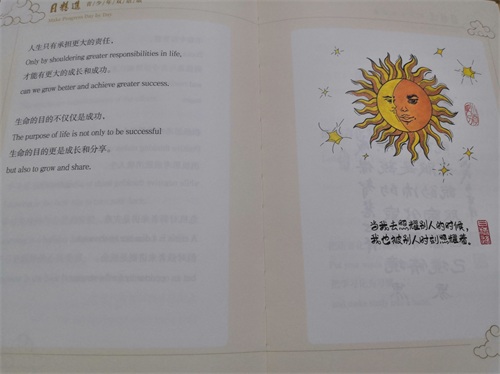 日精进
Make Progress Day by Day
人生只有承担更大的责任，
Only by shouldering greater responsibilities in life,
才能有更大的成长和成功。
can we grow better and achieve greater success.
生命的目的不仅仅是成功，
The purpose of life is not only to be successful
生命的目的更是成长和分享。
but also to grow and share.
当我去照耀别人的时候，
我也被别人时刻照耀着。